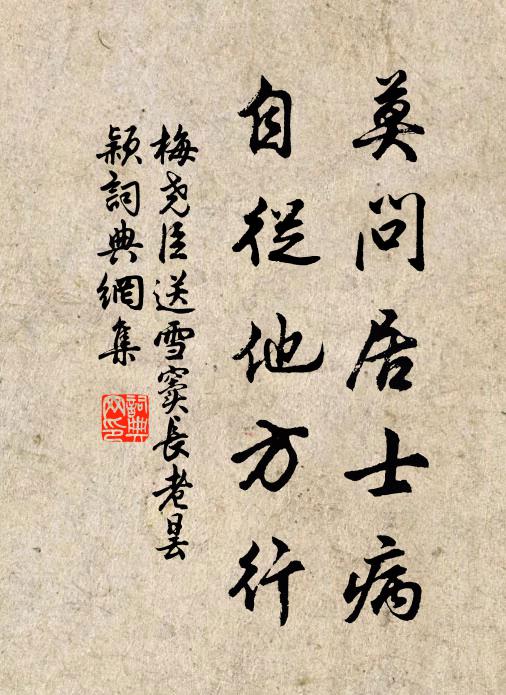 莫問居士病
自從他方行
梅堯臣送雪竇長老曇
穎詞典網集
詞典
网印